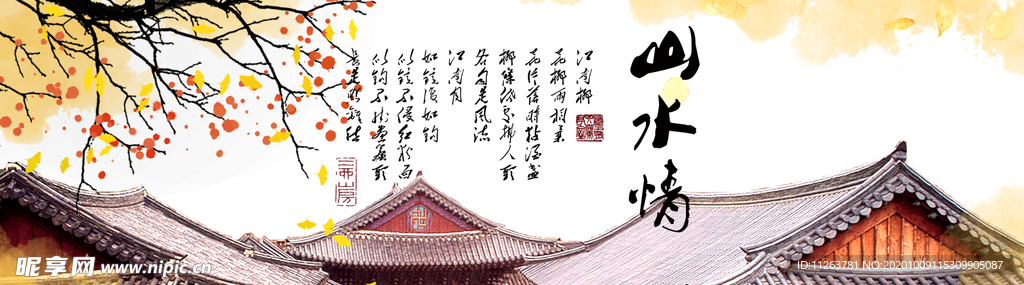 山水情
江南柳
花柳兩相柔
花片落時粘酒盏
柳條低處拂人頭
各自是風流
江南月
如鏡復如鈎
似鏡不侵紅粉面
似鈎不掛畫簾頭
長是照離愁
昵享网 www.nipic.cn
ID:11263781 NO:20201009115309905087